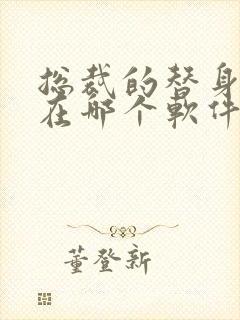 总裁的替身
在哪个軟件
董登新